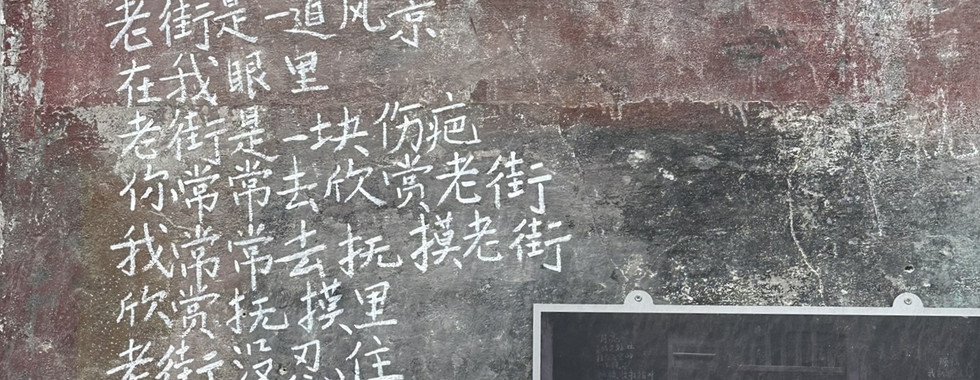 老街是一道风景
在我眼里
老街是一块伤疤
你常常去欣赏老街
我常常去抚摸老街
欣赏抚摸里
老街没忍住